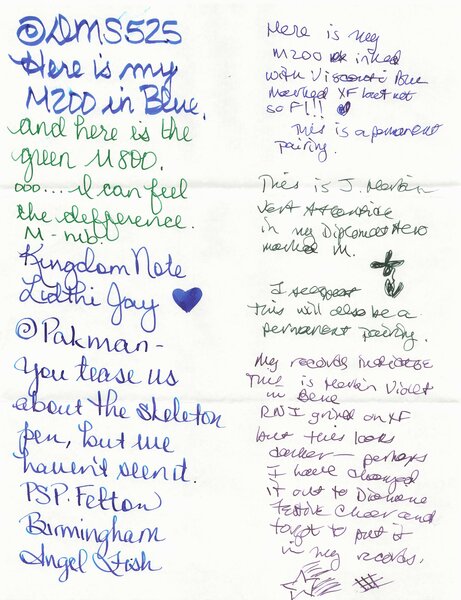 @DMS525
Here is my
M200 in Blue.
and here is the
green M800.
ooo... I can feel
the defference.
M-nib!
Kingdom Note
Lidthi Jay
@Pakman-
You tease us
about the skeleton
pen, but we
haven't seen it.
PSP. Felton
Birmingham
Angel Fish
Here is my
M200 inked
with Visconti Blue
marked XF but not
so F!!!
This is a permanent
pairing.
This is J. Herbin
Vert
in my Diplomat Aero
marked M.
I suspect
this will also be a
permanent pairing.
My records indicate
this is Herbin Violet
in Bene
grind on XF
but this looks
darker - perhaps
I have changed
it out to Diamine
Festive Cheer and
forgot to put it
in my records.